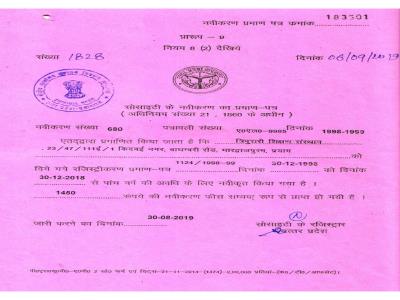 नवीकरण प्रमाण पत्र क्रमांक 183501
प्रारूप - 9
नियम 8 (2) देखिये
संख्या 1828 दिनांक 06/09/2019
सोसाइटी के नवीकरण का प्रमाण-पत्र
( अधिनियम संख्या 21 , 1860 के अधीन )
नवीकरण संख्या 680 पत्रावली संख्या दिनांक 1998-1999
एतद्द्वारा प्रमाणित किया जाता है कि त्रिमूर्ति शिक्षण संस्थान
23/47/111ई/1 किदवई नगर, बाघम्बरी रोड, प्रयाग को
1124/1998-99 30-12-1998
दिये गये रजिस्ट्रीकरण प्रमाण-पत्र दिनांक को दिनांक
30-12-2018 से पांच वर्ष की अवधि के लिए नवीकृत किया गया है ।
1460 रूपये की नवीकरण फीस सम्यक् रूप से प्राप्त हो गयी है ।
30-08-2019
जारी करने का दिनांक सोसाइटी के रजिस्ट्रार
उत्तर प्रदेश